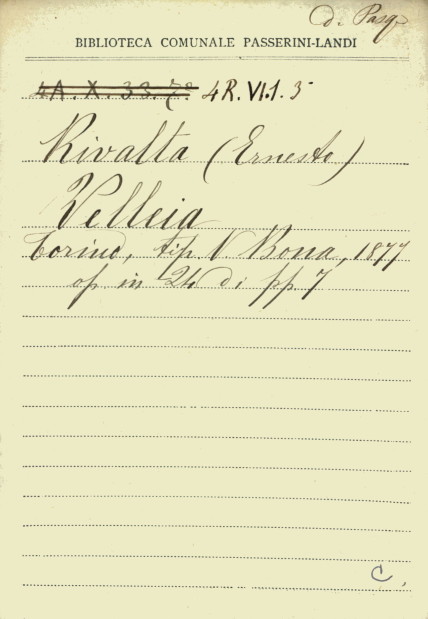 di Pasq
BIBLIOTECA COMUNALE PASSERINI-LANDI
4A. X. 33. 7º 4R. VI.1. 35
Rivalta (Ernesto)
Velleia
Torino, tip V Bona, 1877
op in 24 di pp. 7
C.